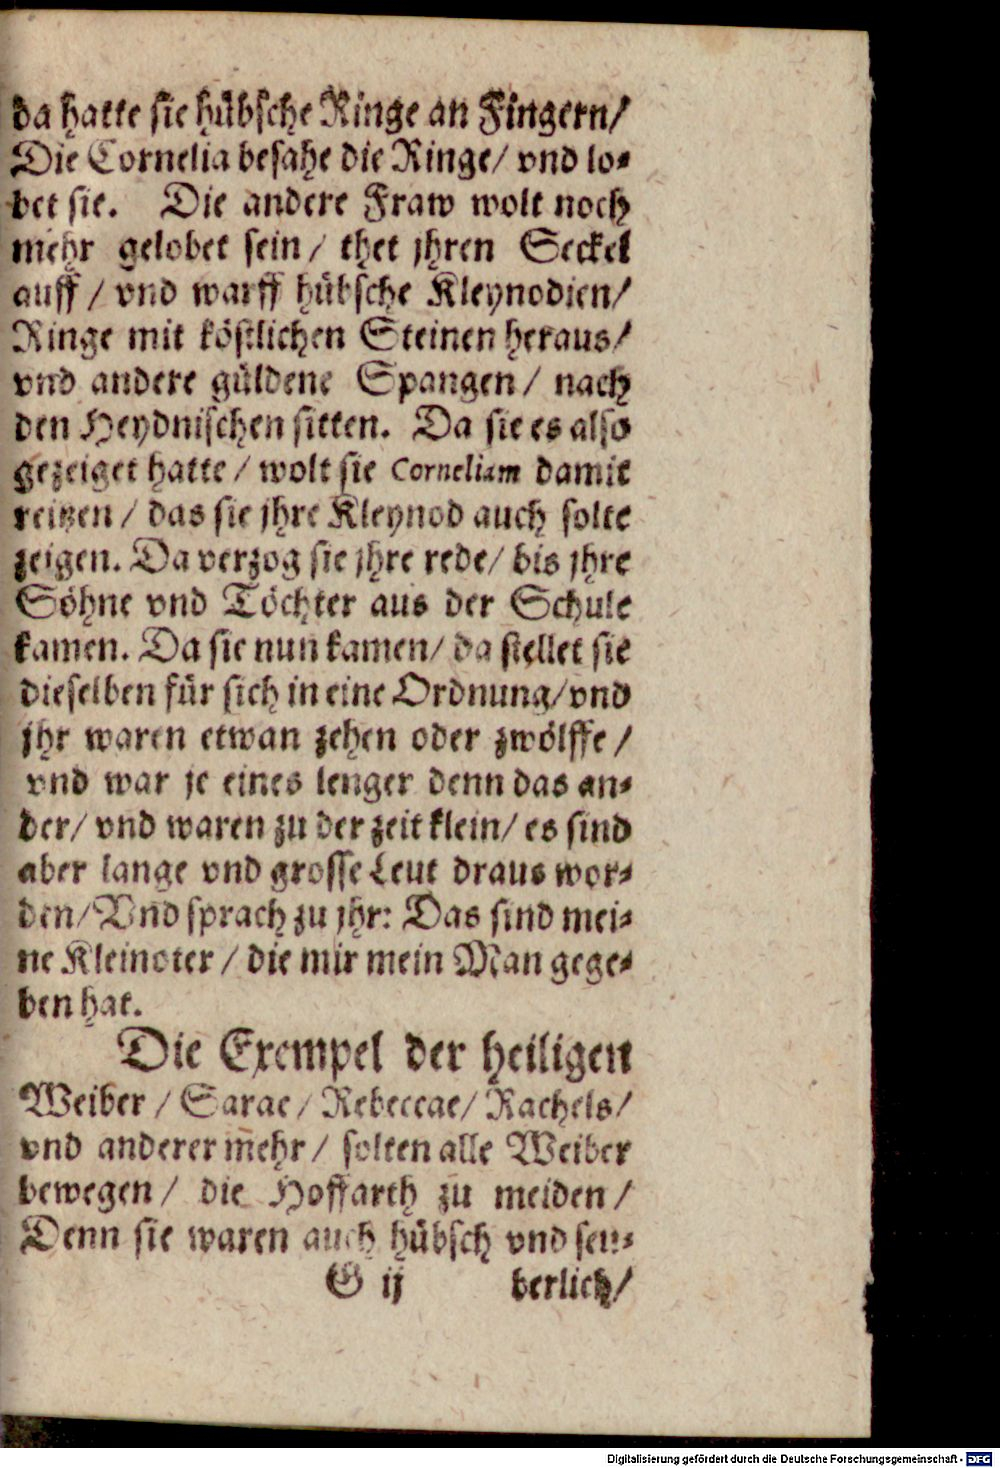 da hatte sie hübsche Ringe an Fingern/
Die Cornelia besahe die Ringe/ vnd lo-
bet sie. Die andere Fraw wolt noch
mehr gelobet sein/ thet jhren Seckel
auff/ vnd warff hübsche Kleynodien/
Ringe mit köstlichen Steinen heraus/
vnd andere güldene Spangen/ nach
den Heydnischen sitten. Da sie es also
gezeiget hatte/ wolt sie Corneliam damit
reitzen/ das sie jhre Kleynod auch solte
zeigen. Da verzog sie jhre rede/ bis jhre
Söhne vnd Töchter aus der Schule
kamen. Da sie nun kamen/ da stellet sie
dieselben für sich in eine Ordnung/ vnd
jhr waren etwan zehen oder zwölffe/
vnd war je eines lenger denn das an-
der/ vnd waren zu der zeit klein/ es sind
aber lange vnd grosse Leut draus wor-
den/ Vnd sprach zu jhr: Das sind mei-
ne Kleinoter/ die mir mein Man gege-
ben hat.
Die Exempel der heiligen
Weiber/ Sarae/ Rebeccae/ Rachels/
vnd anderer mehr/ solten alle Weiber
bewegen/ die Hoffarth zu meiden/
Denn sie waren auch hübsch vnd seu-
G ij berlich/
Digitalisierung gefördert durch die Deutsche Forschungsgemeinschaft - DFG